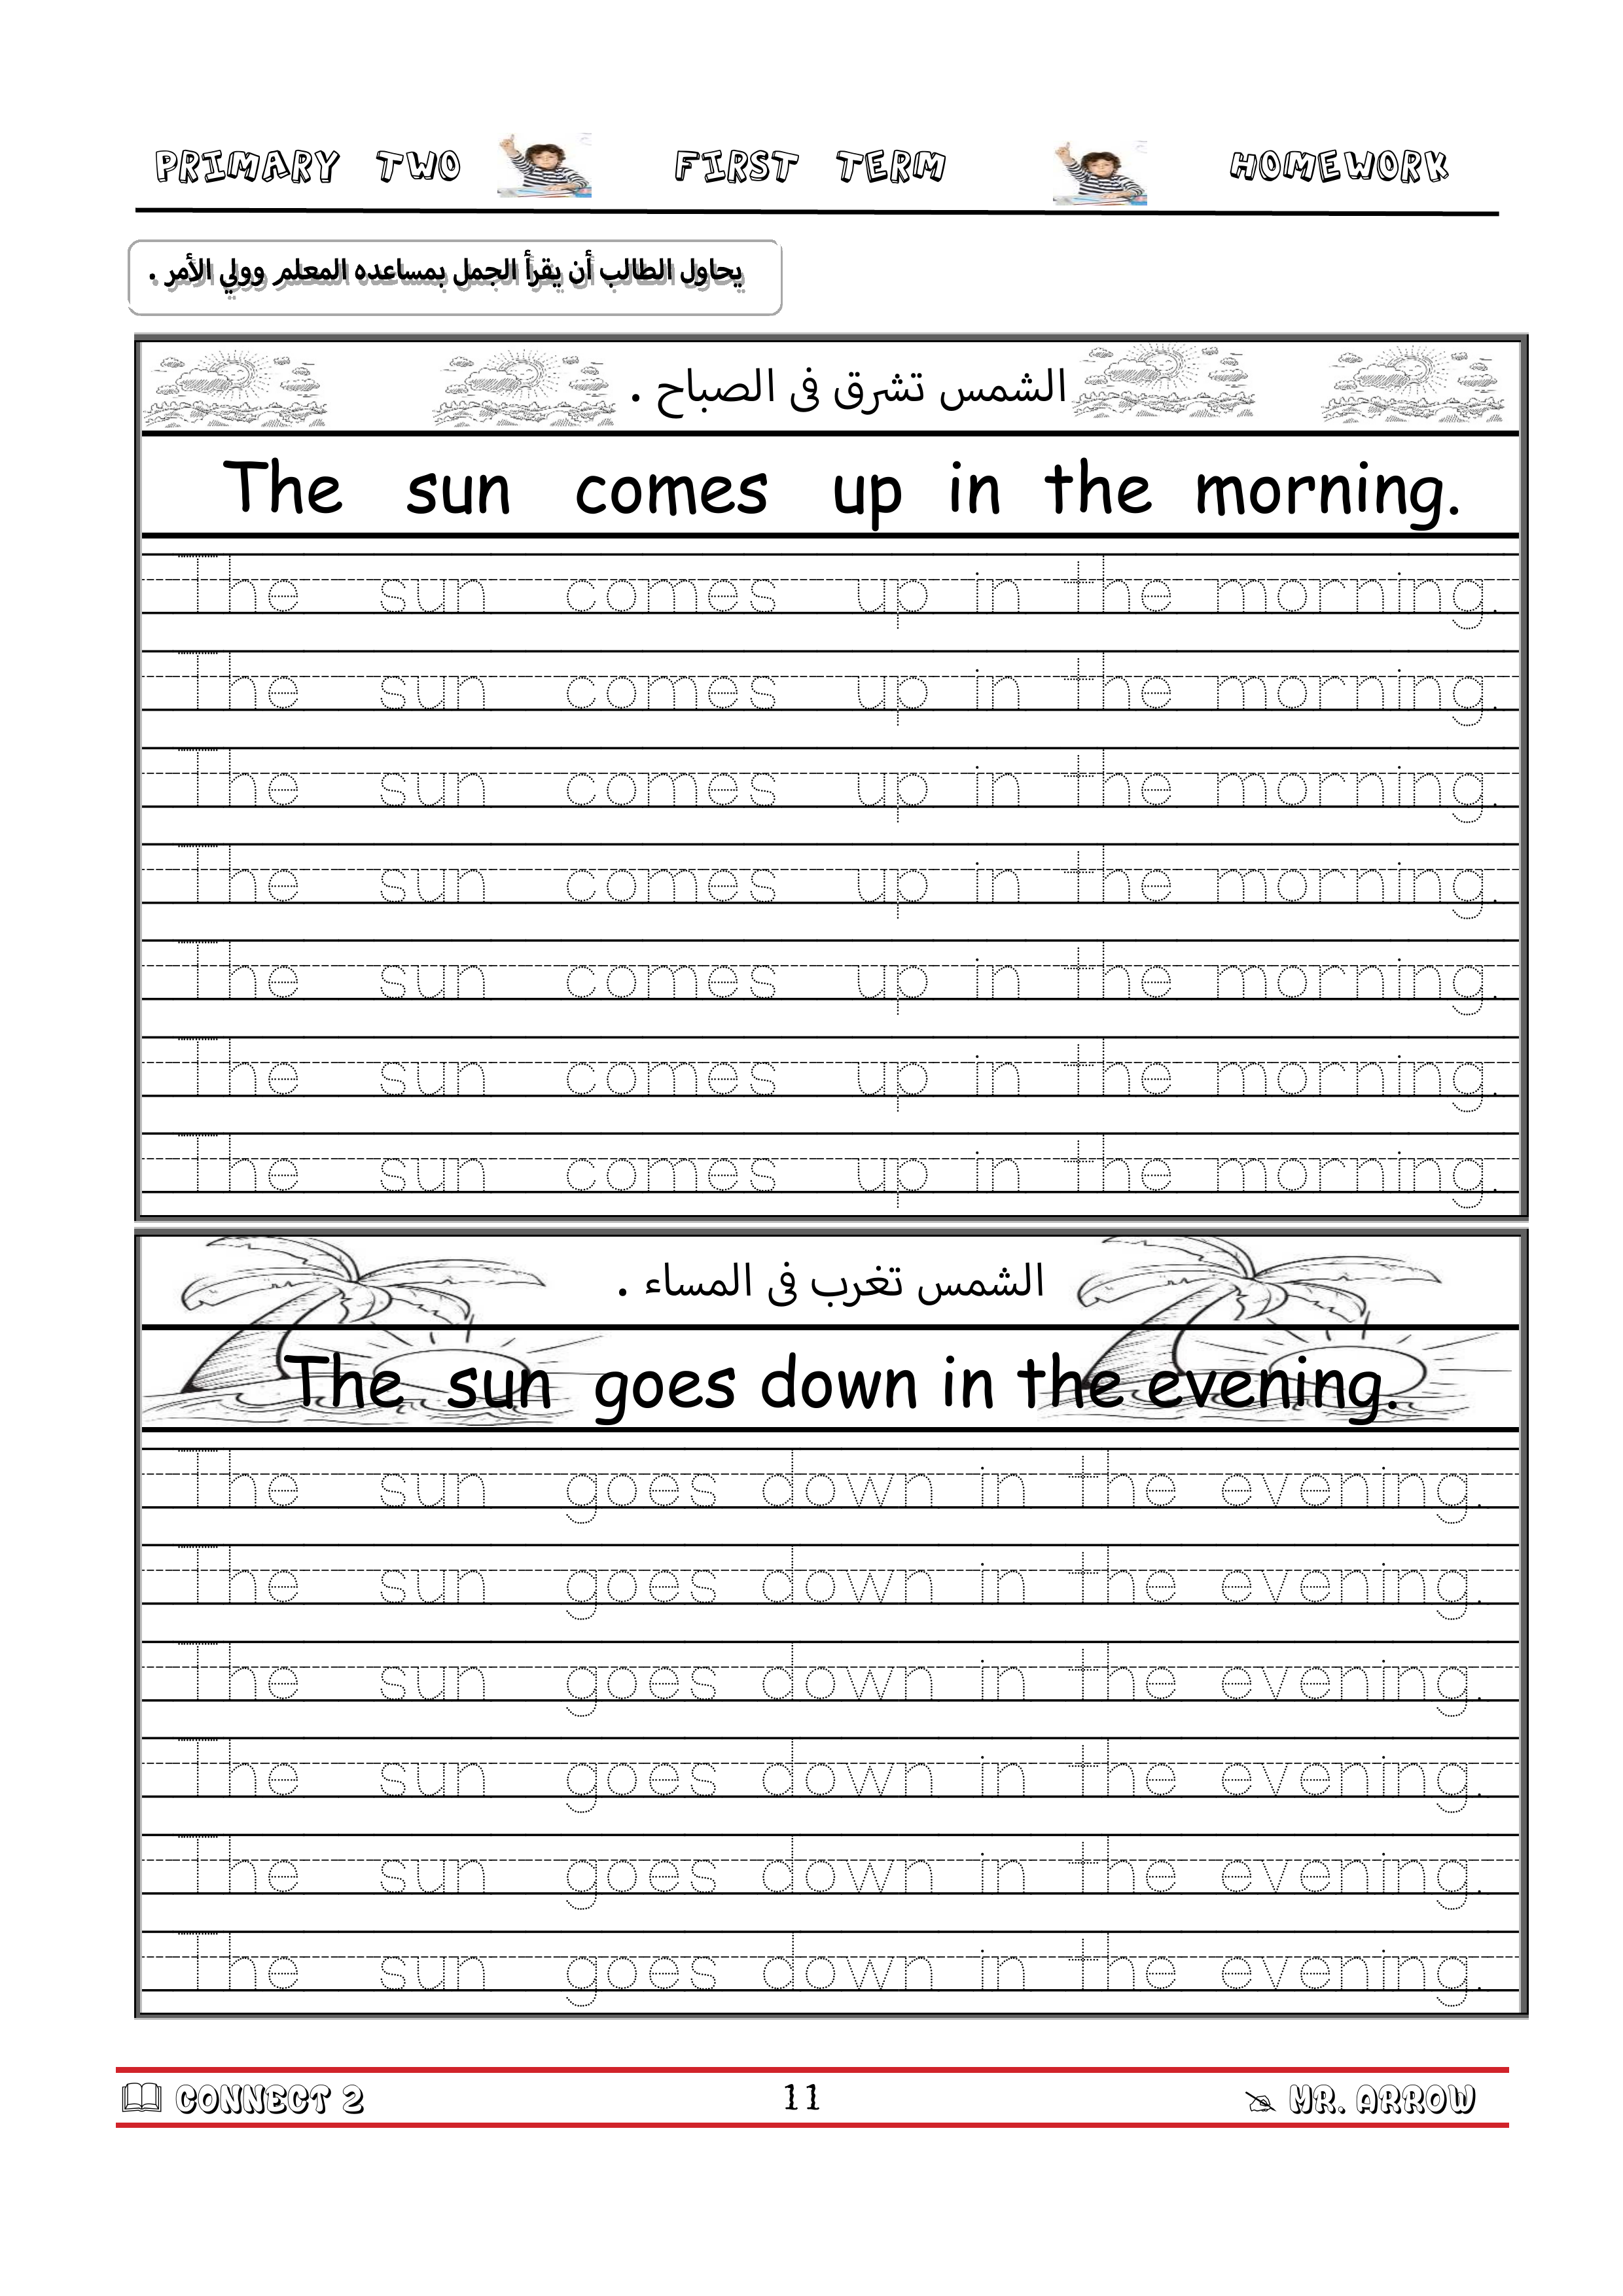 PRIMARY TWO FIRST TERM HOMEWORK
يحاول الطالب أن يقرأ الجمل بمساعده المعلم وولي الأمر .
الشمس تشرق فى الصباح .
The sun comes up in the morning.
The sun comes up in the morning.
The sun comes up in the morning.
The sun comes up in the morning.
The sun comes up in the morning.
The sun comes up in the morning.
The sun comes up in the morning.
The sun comes up in the morning.
الشمس تغرب فى المساء .
The sun goes down in the evening.
The sun goes down in the evening.
The sun goes down in the evening.
The sun goes down in the evening.
The sun goes down in the evening.
The sun goes down in the evening.
The sun goes down in the evening.
CONNECT 2 11 MR. ARROW